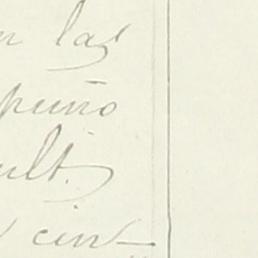 n las
puño
ult.
cin-